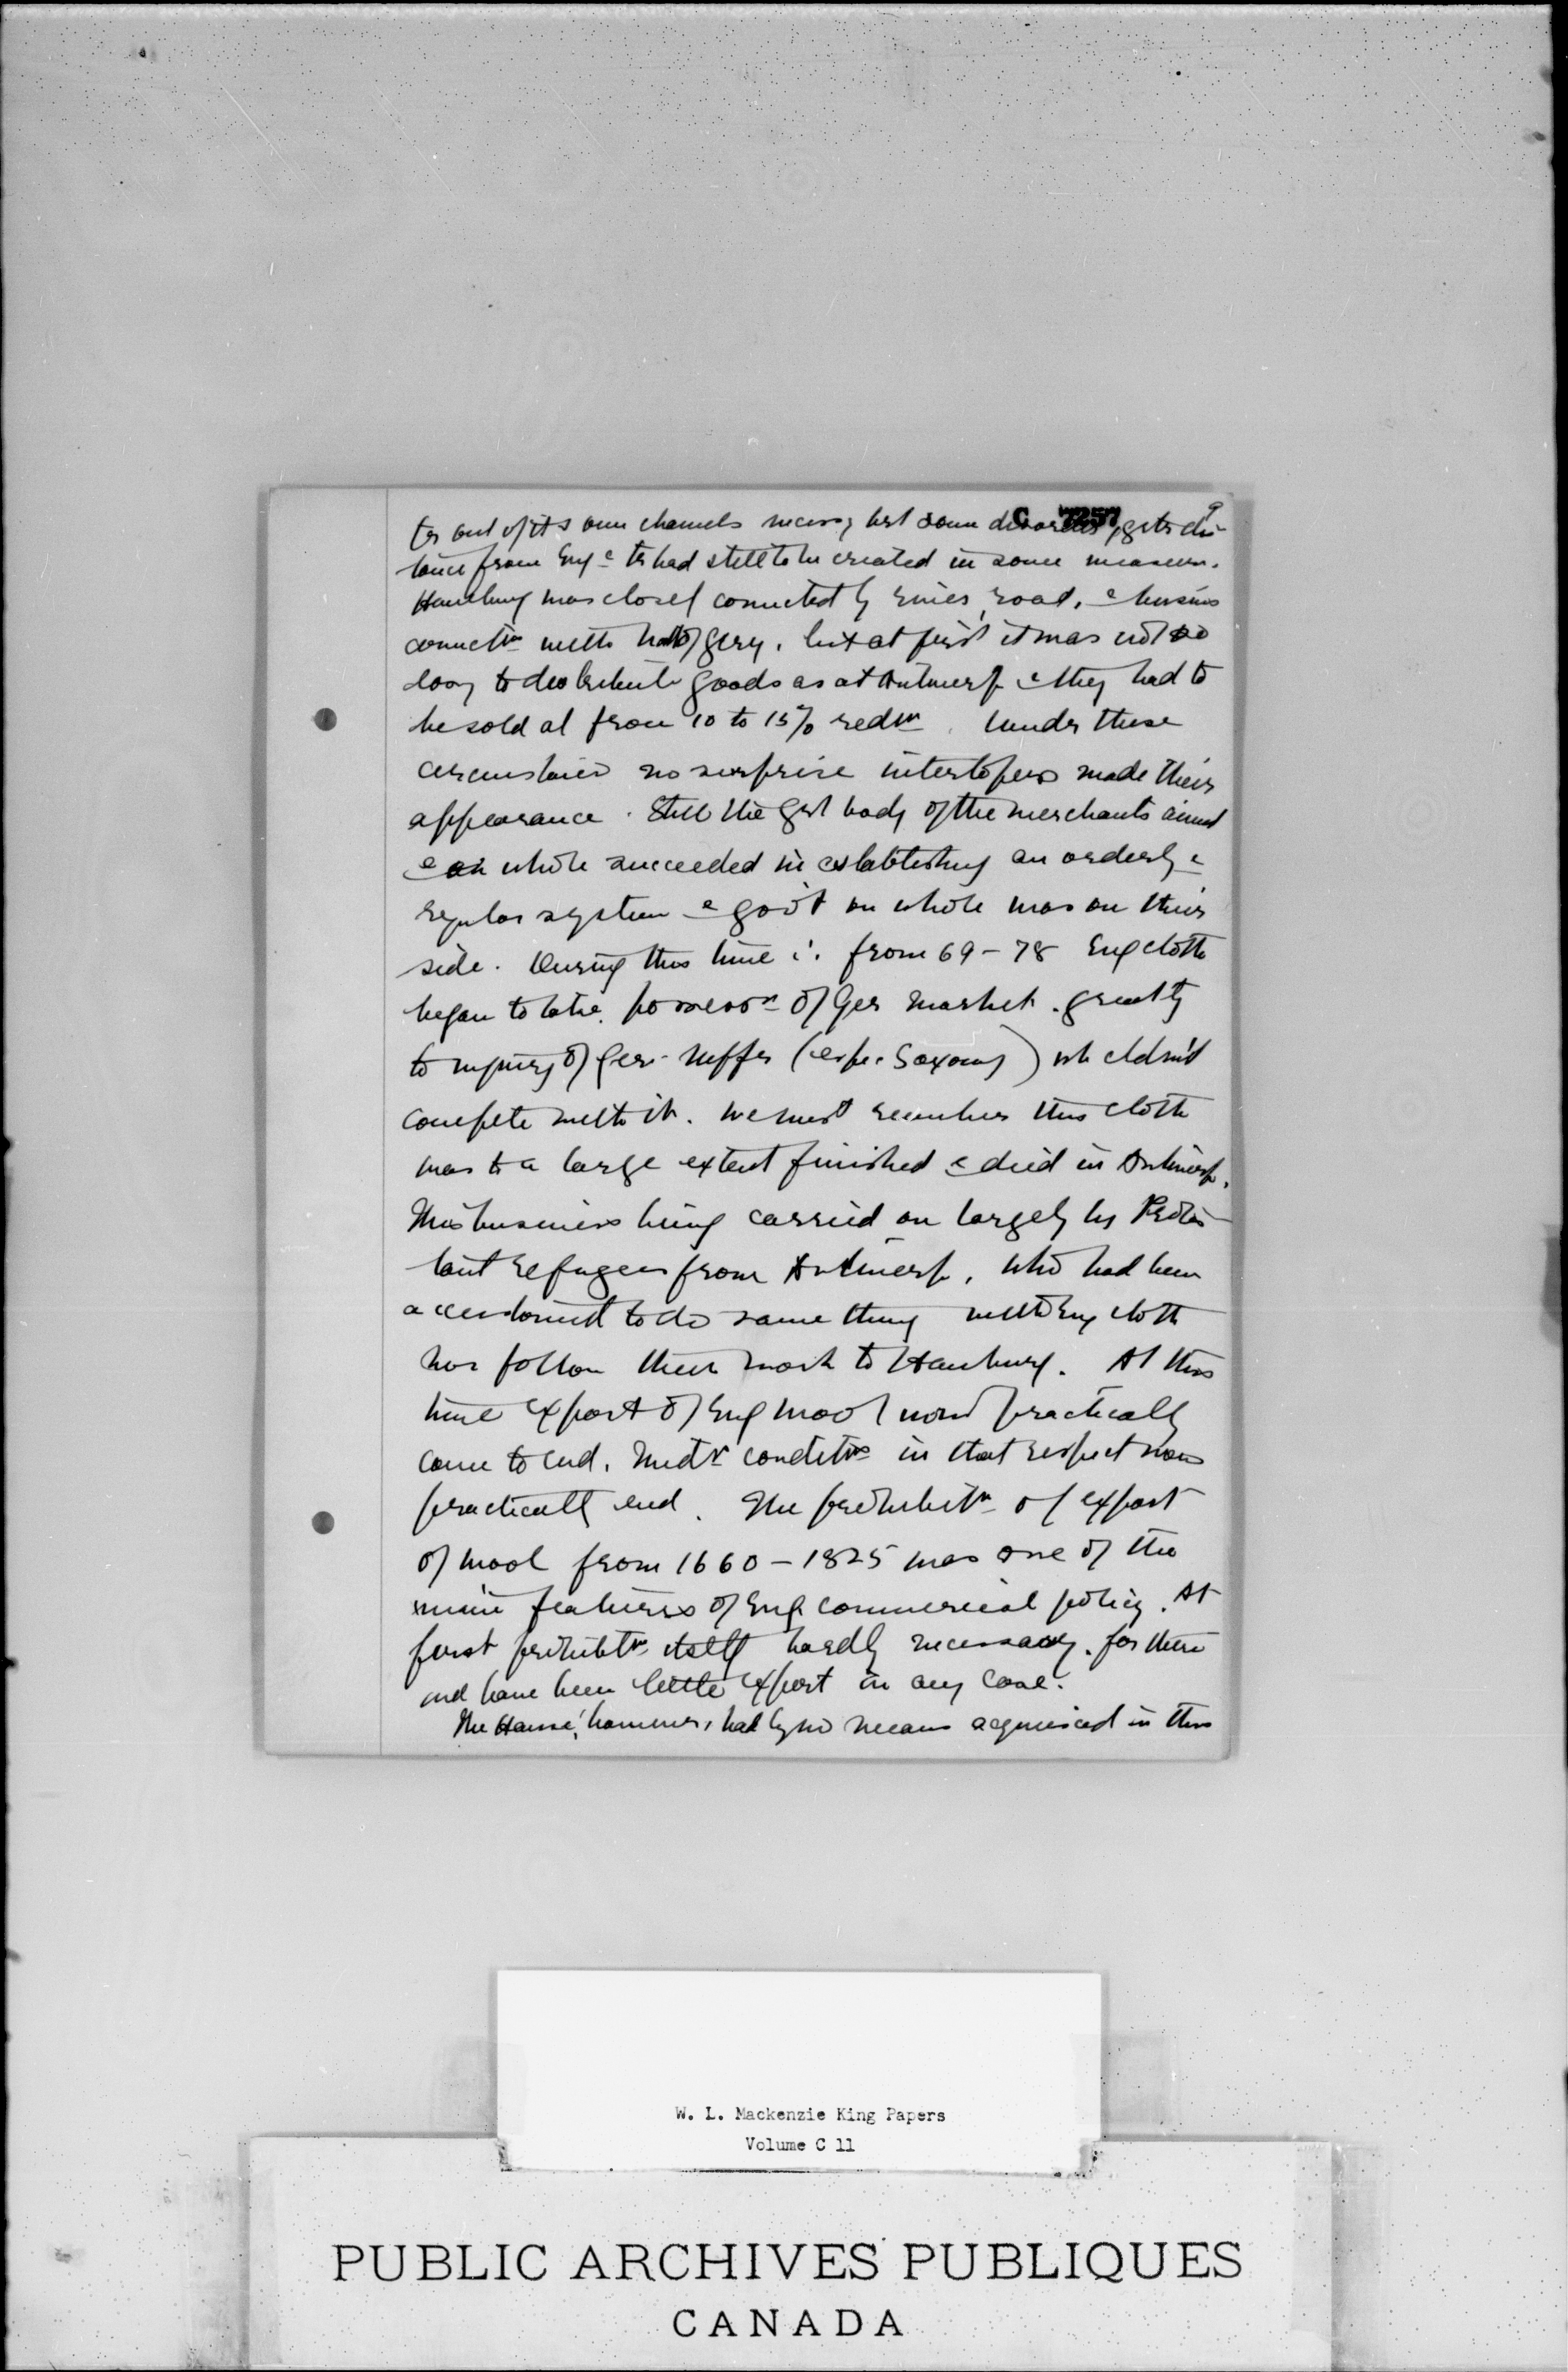 C 7257 9
out of its own channels necessy but some disorder, gtr dis-
tance from Eng & tr had still to be created in some measure.
Hamburg was closely connected by river, road, & business
connectn with hall of Gery. but at first it was not so
easy to distribute goods as at Antwerp & they had to
be sold at from 10 to 15% redn. Under these
circumstances no surprise interlopers made their
appearance. Still the grt body of the merchants aimed
& on whole succeeded in establishing an orderly &
regular system & gov't on whole was on their
side. During this time i. from 69-78 Eng cloth
began to take possessn of Ger market. greatly
to injury of Ger. mffrs (espec. Saxony) wh cldn't
compete with it. We must remember this cloth
was to a large extent finished & died in Antwerp.
This business being carried on largely by Protes-
tant refugees from Antwerp, who had been
accustomed to do same thing with Eng cloth
now follow their work to Hamburg. At this
time export of Eng wool now practically
come to end. Medvl conditns in that respect now
practically end. The prohibitn of export
of wool from 1660-1825 was one of the
main features of Eng. commercial policy. At
first prohibitn itself hardly necessary. for there
wd have been little export in any case.
The Hanse, however, had by no means acquiesced in this
W. L. Mackenzie King Papers
Volume C 11
PUBLIC ARCHIVES PUBLIQUES
CANADA